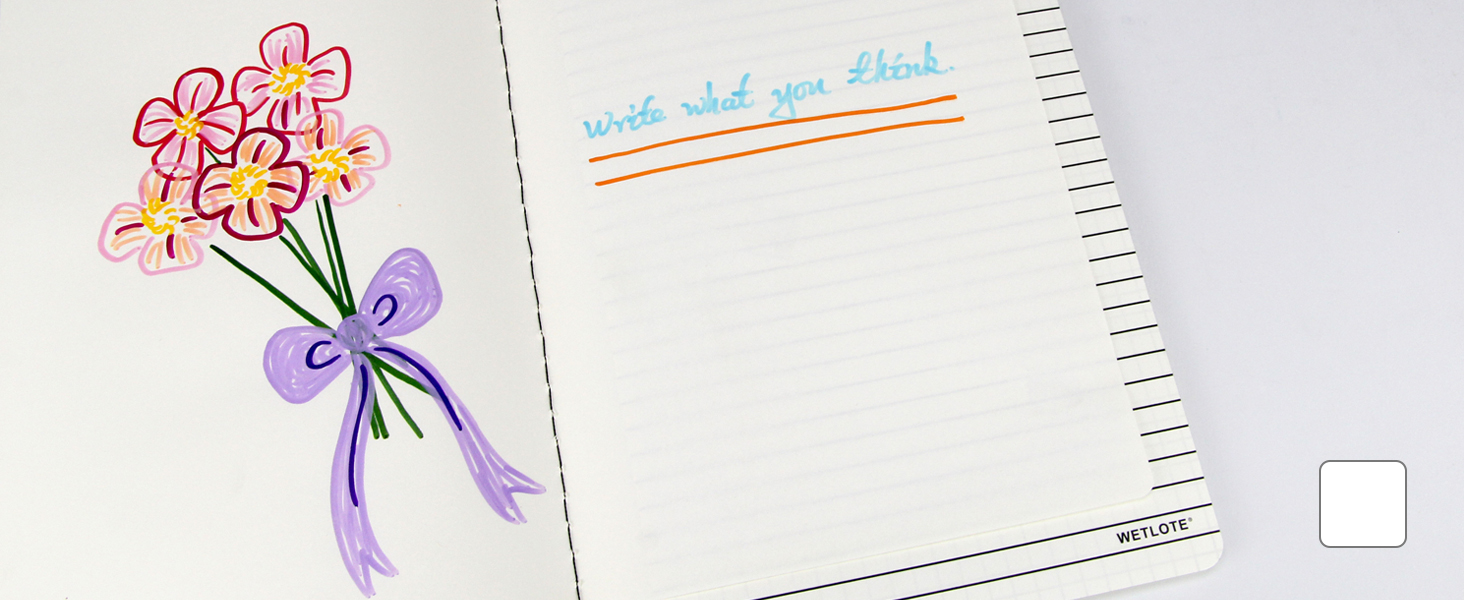 Write what you think.
WETLOTE®